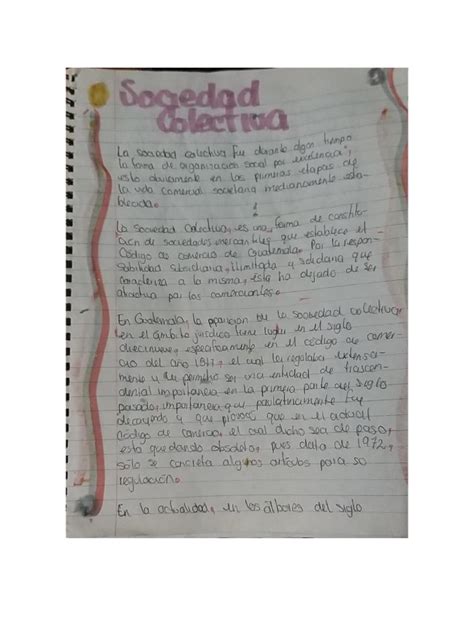 Sociedad
Colectiva
La sociedad colectiva fue durante algún tiempo
la forma de organización social por excelencia,
visto obviamente en las primeras etapas de
la vida comercial societaria medianamente esta-
blecida.
La Sociedad Colectiva, es una forma de constitu-
ción de sociedades mercantiles que establece el
Código de comercio de Guatemala. Por la respon-
sabilidad subsidiaria, ilimitada y solidaria que
caracteriza a la misma, ésta ha dejado de ser
atractiva para los comerciantes.
En Guatemala, la aparición de la sociedad colectiva
en el ámbito jurídico tiene lugar en el siglo
diecinueve, específicamente en el código de comer-
cio del año 1877, el cual les regulaba extensa-
mente y le permitió ser una entidad de trascen-
dental importancia en la primera parte del siglo
pasado, importancia que paulatinamente fue
decayendo y que provocó que en el actual
Código de comercio, el cual dicho sea de paso,
esta quedando obsoleto, pues data de 1972,
sólo se concreta algunos artículos para su
regulación.
En la actualidad, en los albores del siglo